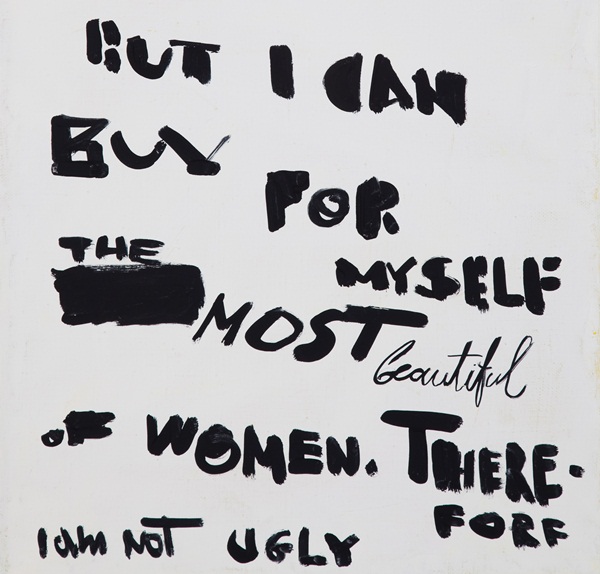 BUT I CAN
BUY
FOR
MYSELF
THE
MOST
beautiful
OF WOMEN. THERE-
FORE
I am NOT UGLY